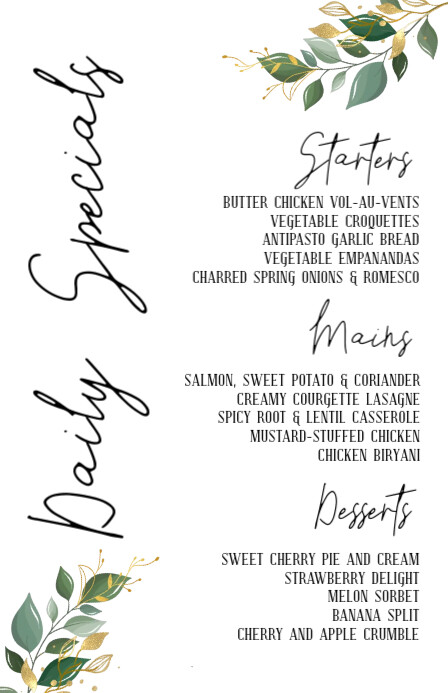 Daily Specials
Starters
BUTTER CHICKEN VOL-AU-VENTS
VEGETABLE CROQUETTES
ANTIPASTO GARLIC BREAD
VEGETABLE EMPANANDAS
CHARRED SPRING ONIONS & ROMESCO
Mains
SALMON, SWEET POTATO & CORIANDER
CREAMY COURGETTE LASAGNE
SPICY ROOT & LENTIL CASSEROLE
MUSTARD-STUFFED CHICKEN
CHICKEN BIRYANI
Desserts
SWEET CHERRY PIE AND CREAM
STRAWBERRY DELIGHT
MELON SORBET
BANANA SPLIT
CHERRY AND APPLE CRUMBLE